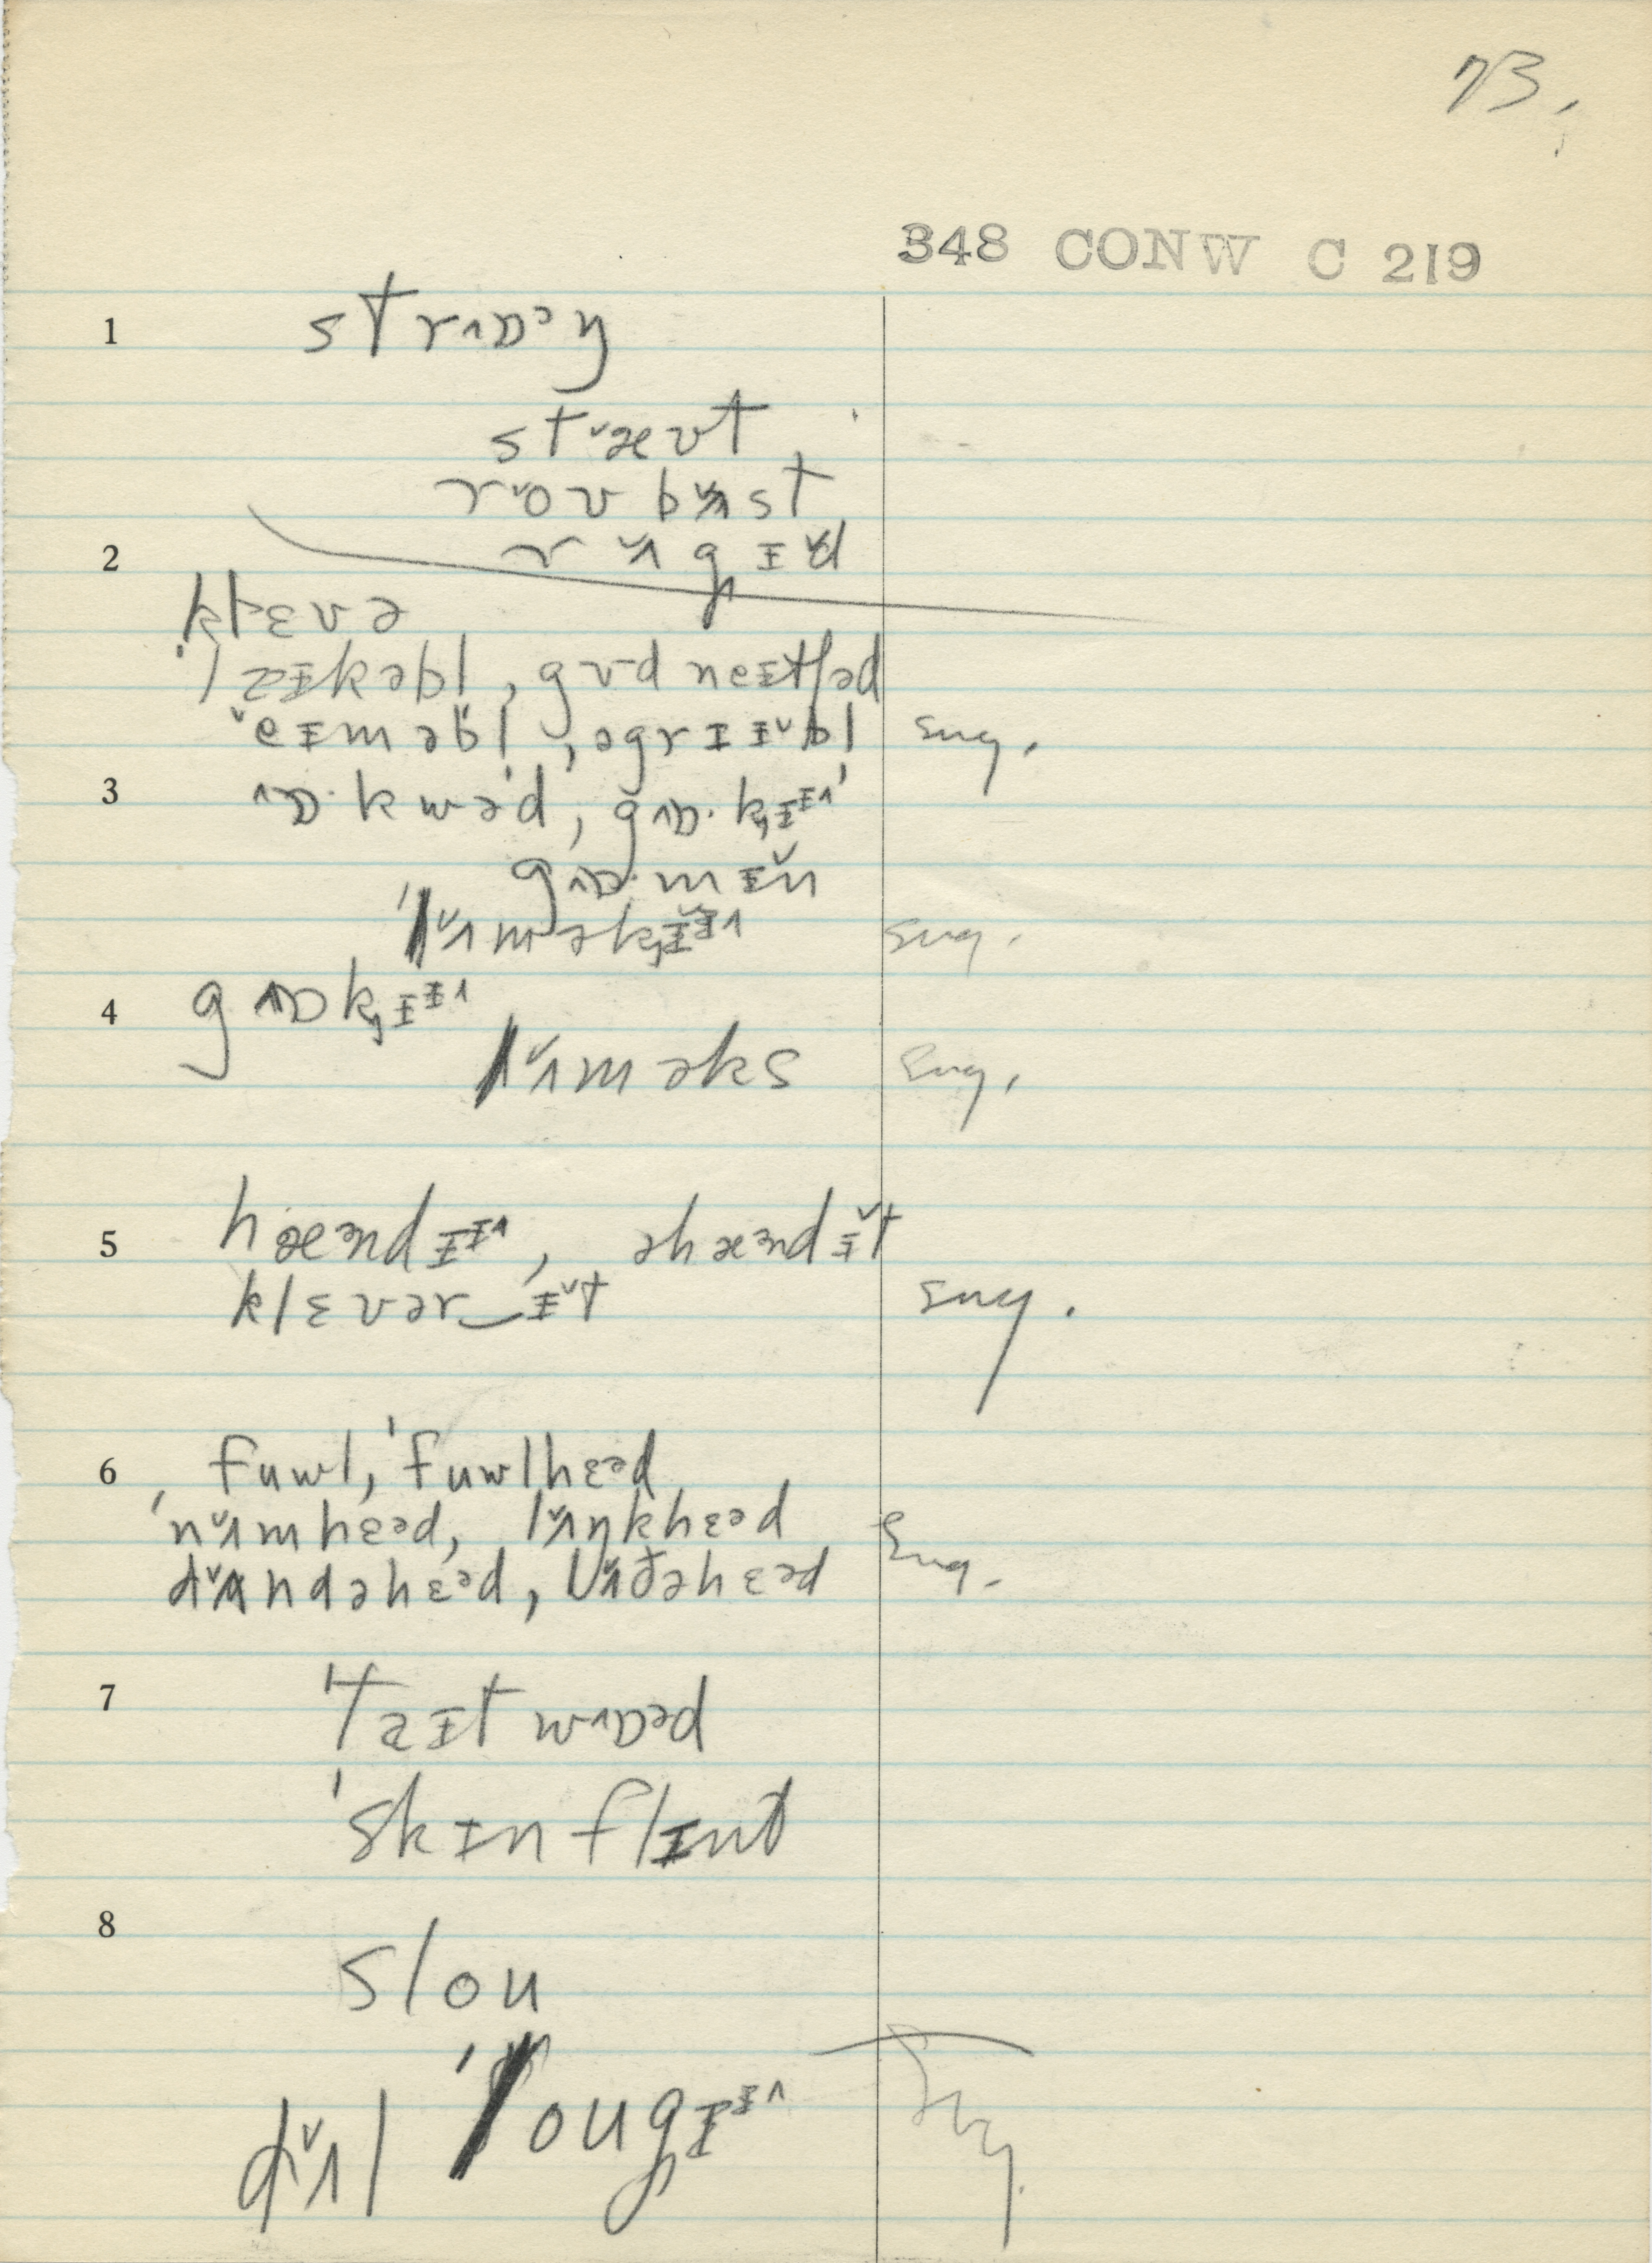 73.
348 CONW C 219
1 strɒ˄ᵊŋ
stᵛævt
rᵛov bʌ̌st
2 r ʌ̌ g ɪ d
klɛvə
ˈlaɪkəbl, gʊd neɪtʃəd
ˇeɪməbl, əgrɪɪˇbl Eng.
3 ˄ɒ·kwə'd, g˄ɒ·kɪᵻ˄
g˄ɒ·mɪ̌n
ˈlʌ̌məkɪᵻ˄ Eng.
4 g˄ɒkɪᵻ˄
lʌ̌məks Eng.
5 hæᵊndɪᵻ˄, əhæᵊndɪ̌t
klɛvər‿ɪ̌t Eng.
6 fuwl, ˈfuwlhɛᵊd
ˈnʌ̌mhɛᵊd, lʌ̌ŋkhɛᵊd Eng.
dʌ̌ndəhɛᵊd,
7 ˈtaɪtw˄ɒᵊd
ˈskɪnflɪnt
8 slou
ˈlougɪᵻ˄ Eng.
dʌ̌l